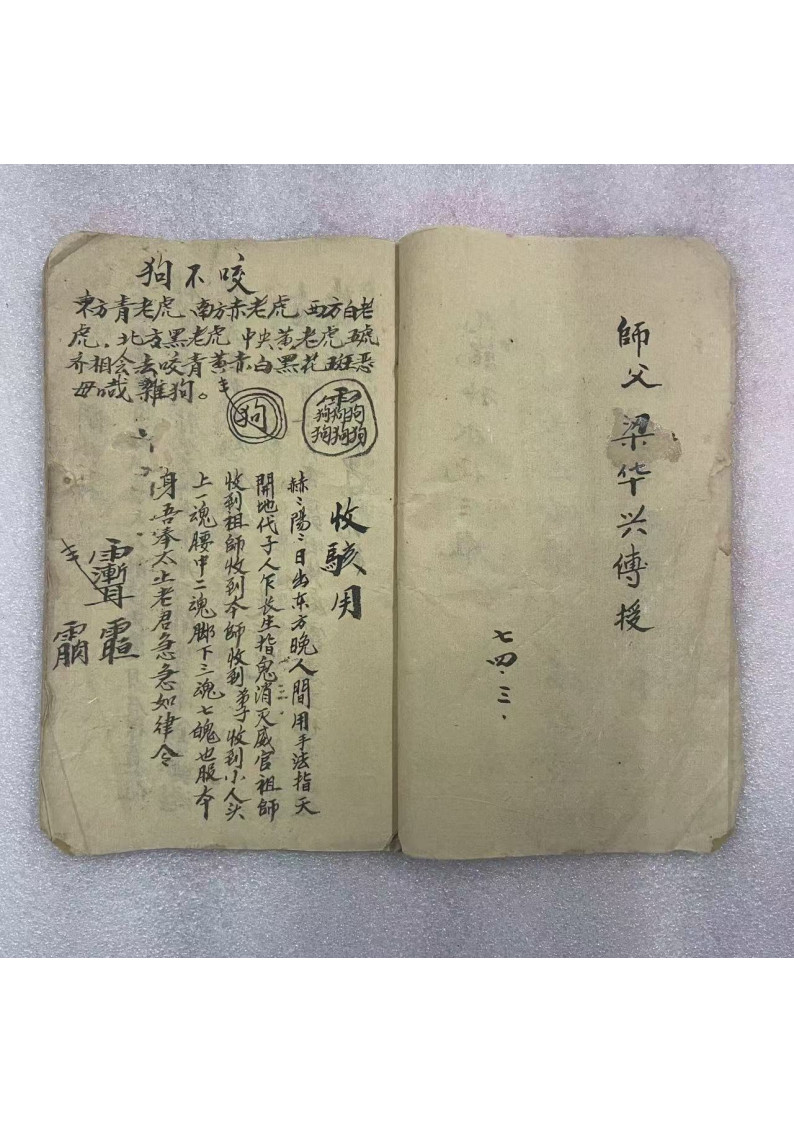 師父 梁华兴傳授
七四.三.
狗不咬
東方青老虎 南方赤老虎 西方白老
虎.北方黑老虎 中央黄老虎 五虎
齐相会去咬青黄赤白黑花斑恶
毋哉雜狗。
狗
狗狗狗
狗狗狗
收駭用
赫〻陽〻日出东方晚人間用手法指天
開地代子人乍长生指鬼消灭威官祖師
收到祖師收到本師收到弟子收到小人头
上一魂腰中二魂脚下三魂七魄也服本
身吾奉太上老君急急如律令